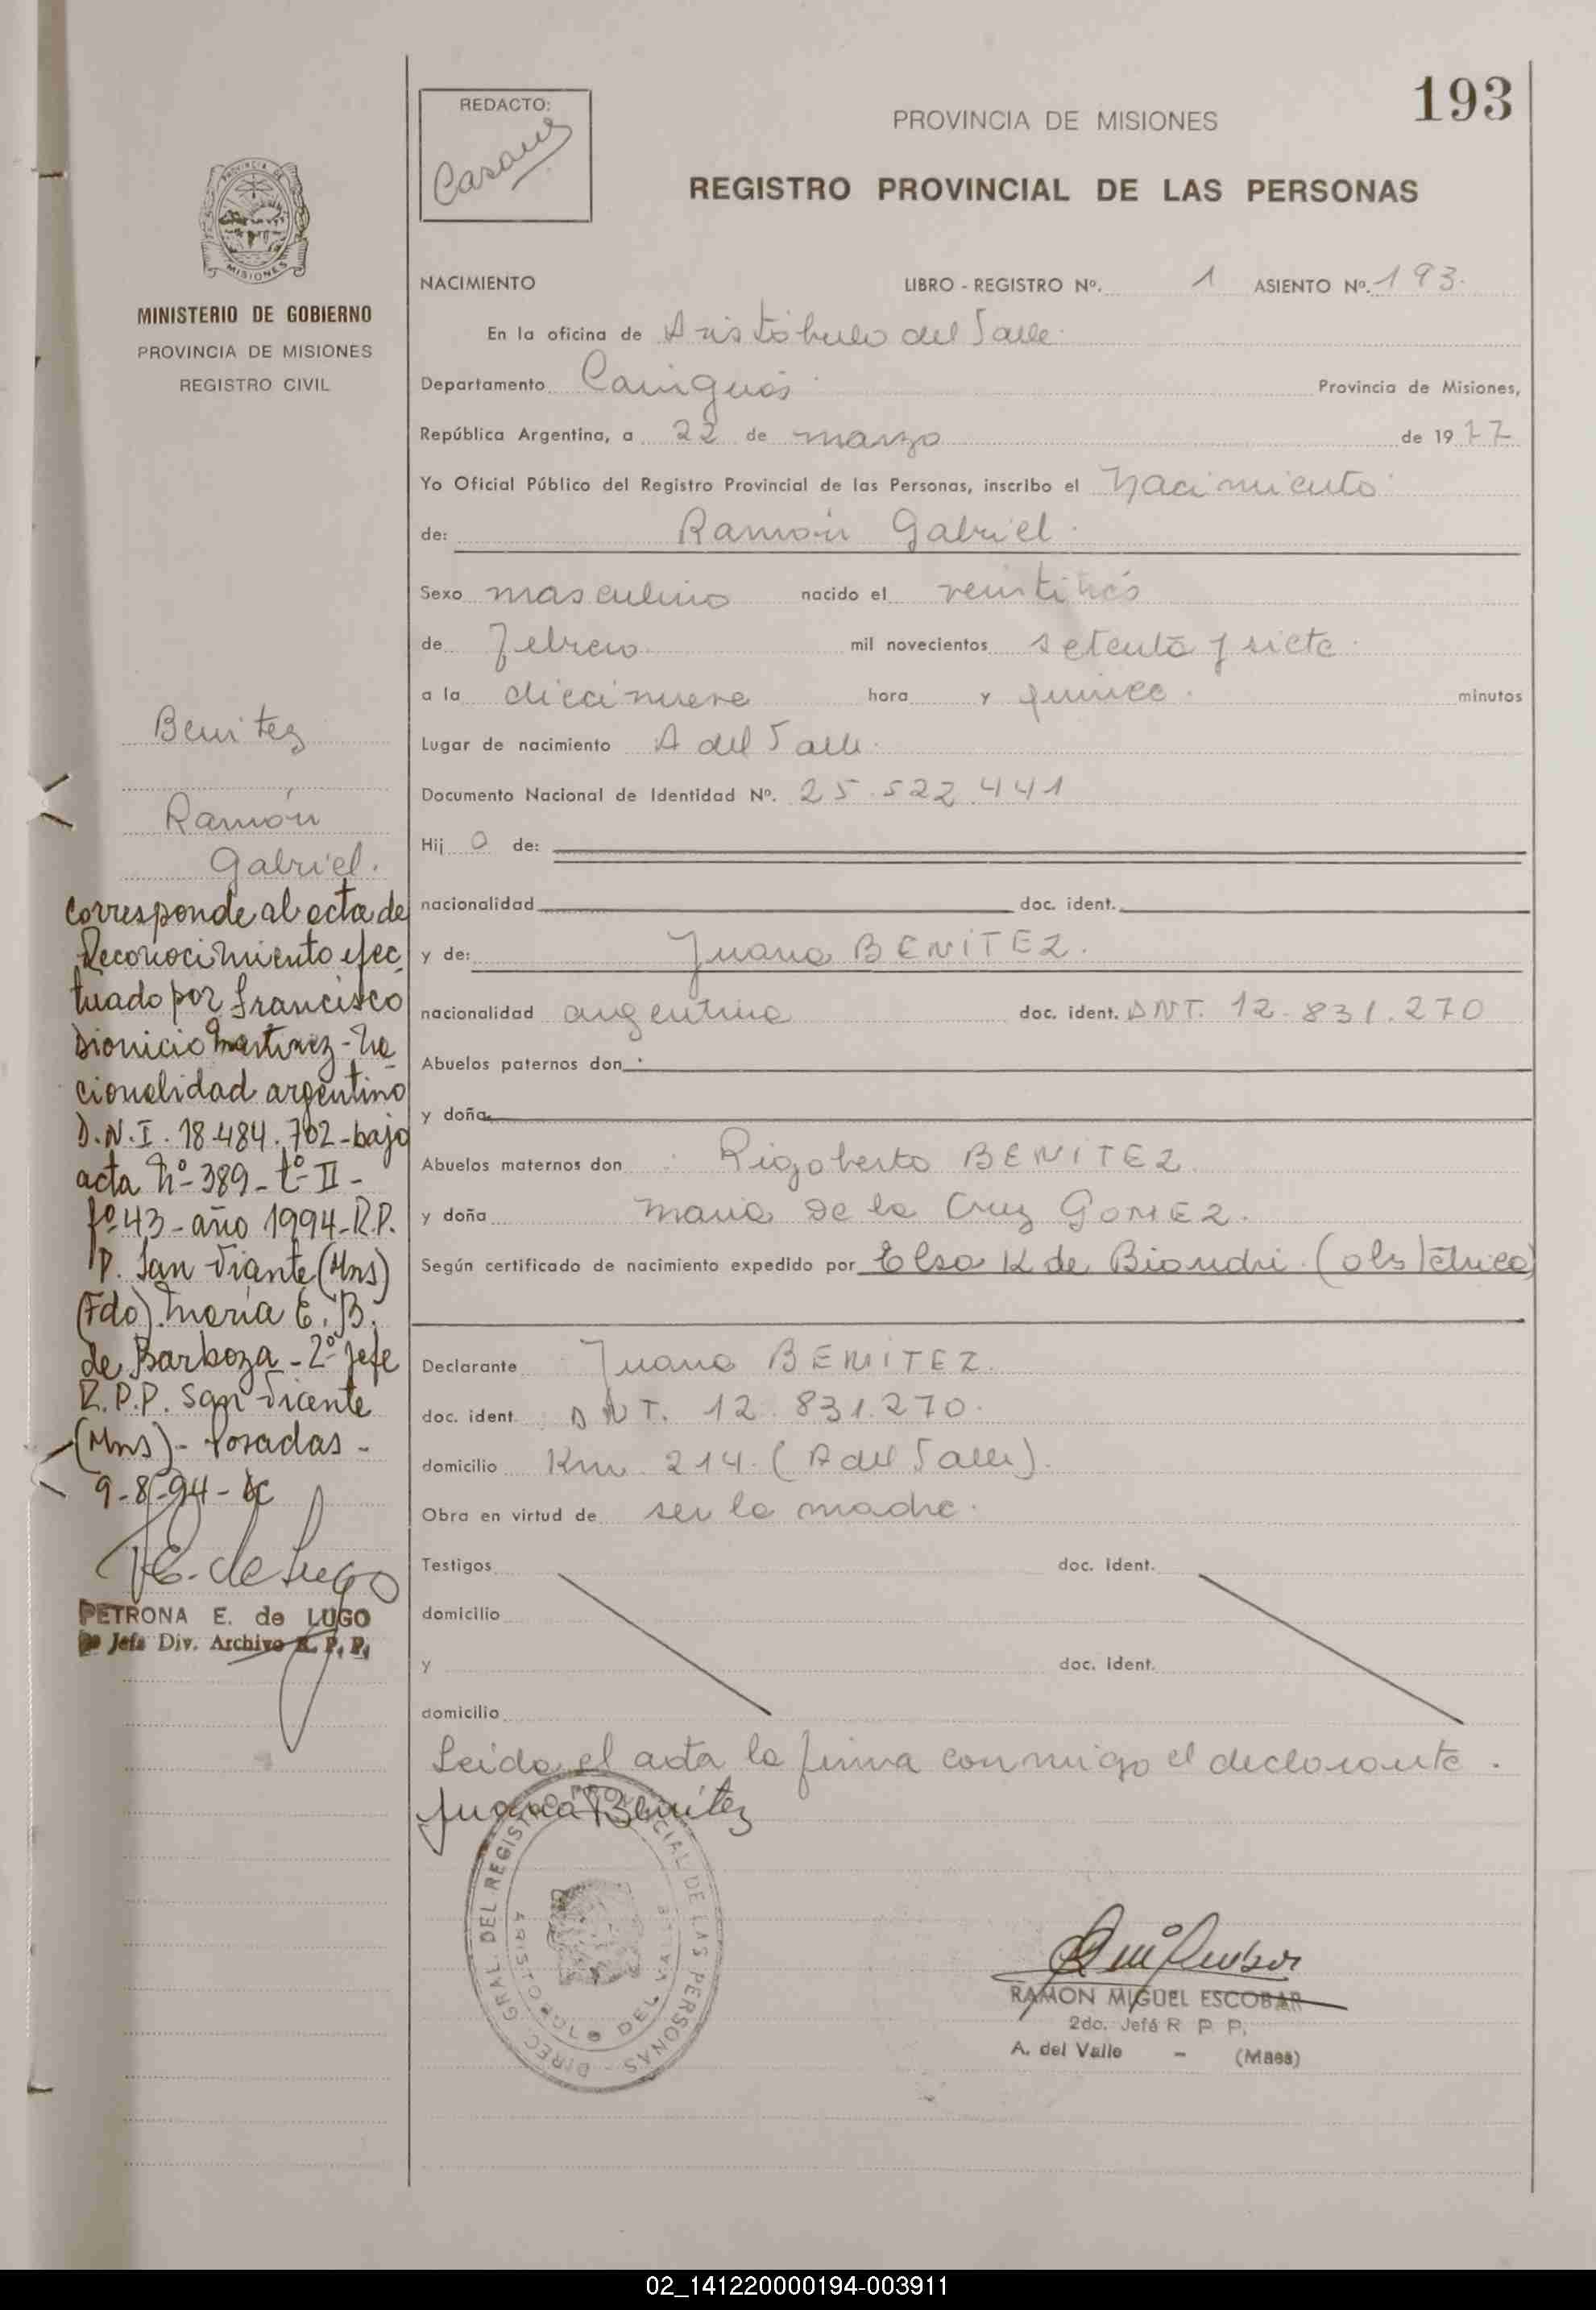 193
REDACTO:
PROVINCIA DE MISIONES
REGISTRO PROVINCIAL DE LAS PERSONAS
PROVINCIA DE
MISIONES
MINISTERIO DE GOBIERNO
PROVINCIA DE MISIONES
REGISTRO CIVIL
NACIMIENTO LIBRO - REGISTRO Nº. 1 ASIENTO Nº. 193.
En la oficina de Aristóbulo del Valle.
Departamento Cainguás. Provincia de Misiones,
República Argentina, a 22 de marzo de 1977
Yo Oficial Público del Registro Provincial de las Personas, inscribo el Nacimiento
de: Ramón Gabriel.
Sexo masculino nacido el veintitrés
de Febrero mil novecientos setenta y siete.
a la diecinueve hora y quince. minutos
Lugar de nacimiento A del Valle.
Documento Nacional de Identidad Nº. 25.522.441
Hij o de:
nacionalidad doc. ident.
y de: Juana BENITEZ.
nacionalidad argentina doc. ident. DNI. 12.831.270
Abuelos paternos don
y doña
Abuelos maternos don Rigoberto BENITEZ.
y doña Maria De la Cruz GOMEZ.
Según certificado de nacimiento expedido por Elsa K de Biondri. (obstétrica)
Declarante Juana BENITEZ.
doc. ident. DNI. 12.831.270.
domicilio Km. 214. (A del Valle).
Obra en virtud de ser la madre.
Testigos doc. ident.
domicilio
y doc. ident.
domicilio
Leida el acta la firma conmigo el declarante.
Juana Benitez
DIREC. GRAL. DEL REGISTRO PROVINCIAL DE LAS PERSONAS
ARISTOBULO DEL VALLE
RAMON MIGUEL ESCOBAR
2do. Jefe R P P.
A. del Valle - (Mnes)
Benitez
Ramón
Gabriel.
Corresponde al acta de
Reconocimiento efec
tuado por Francisco
Dionicio Martinez - na
cionalidad argentino
D.N.I. 18.484.702 - bajo
acta nº 389 - tº II -
fº 43 - año 1994 - R.P.
P. San Viante (Mns)
(Fdo). María E. B.
de Barboza - 2º Jefe
R.P.P. San Vicente
(Mns) - Posadas -
9-8-94 -
P.E. de Lugo
PETRONA E. de LUGO
Jefa Div. Archivo R. P. P.
02_141220000194-003911